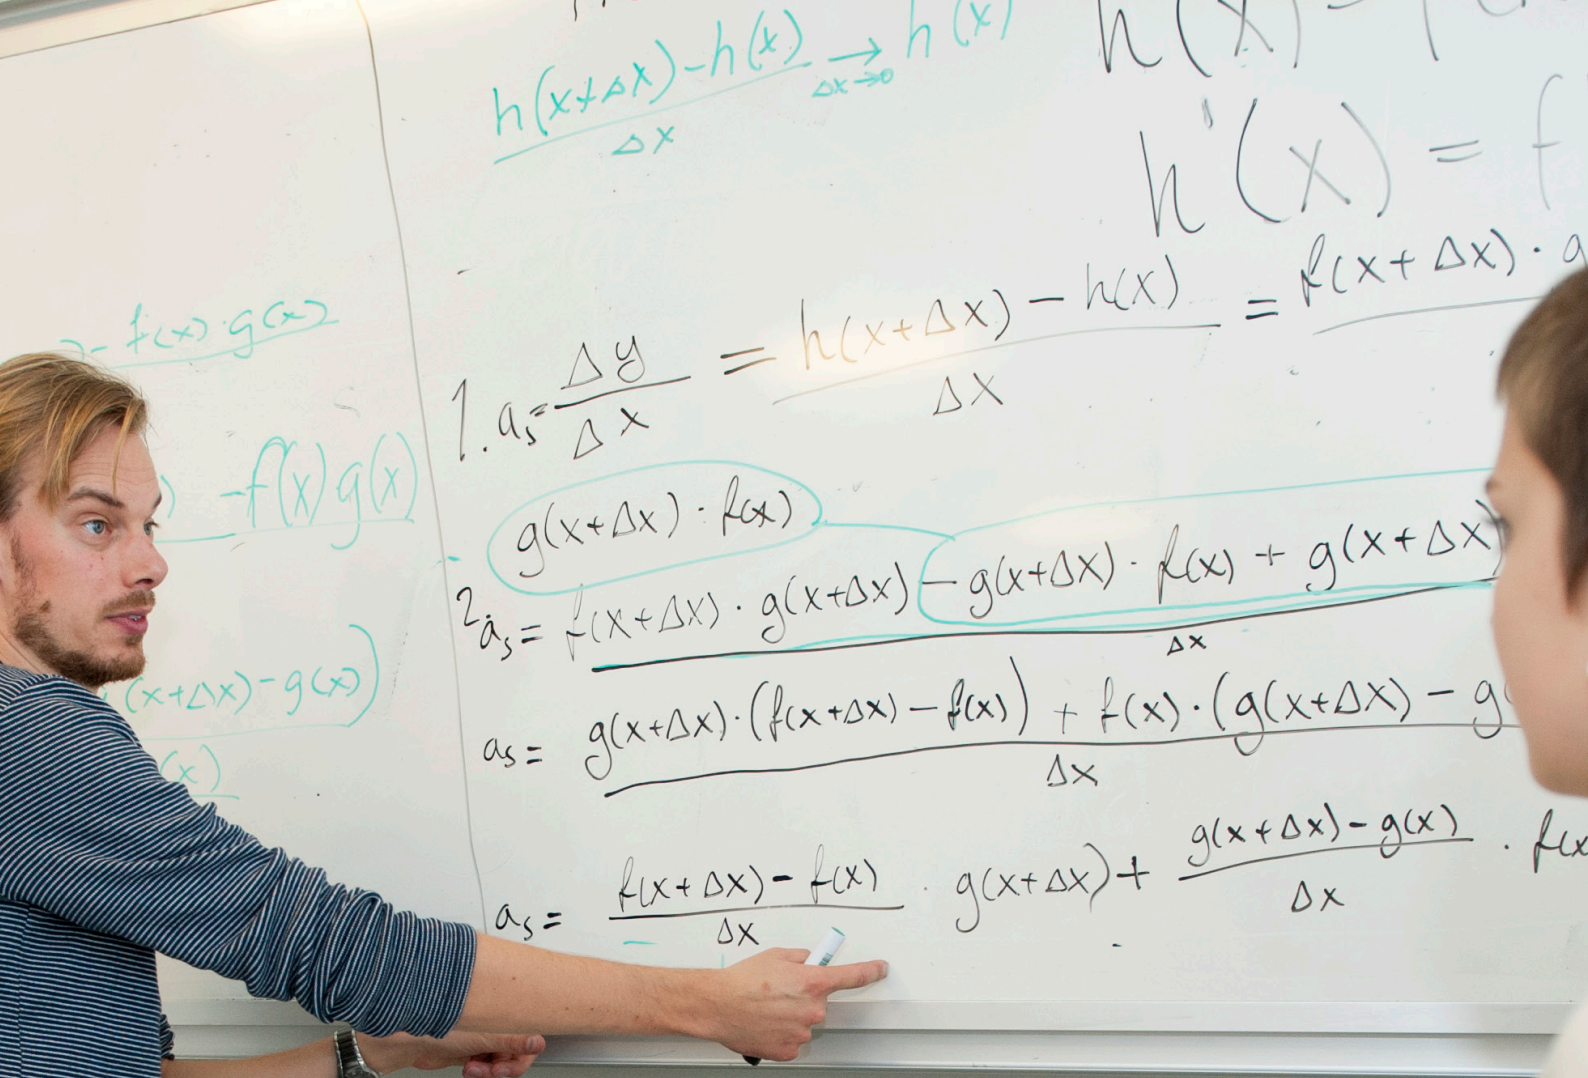 h(x+Δx)-h(x) → h(x)
Δx Δx→0
h(x) =
h'(x) = f
- f(x)·g(x)
1. a_s = Δy/Δx = (h(x+Δx) - h(x))/Δx = f(x+Δx)· g
) -f(x)g(x)
g(x+Δx)·f(x)
2. a_s = f(x+Δx)·g(x+Δx) - g(x+Δx)·f(x) + g(x+Δx)
Δx
(x+Δx)-g(x))
(x)
a_s = g(x+Δx)·(f(x+Δx) - f(x)) + f(x)·(g(x+Δx) - g(
Δx
a_s = (f(x+Δx) - f(x))/Δx · g(x+Δx) + (g(x+Δx) - g(x))/Δx · f(x